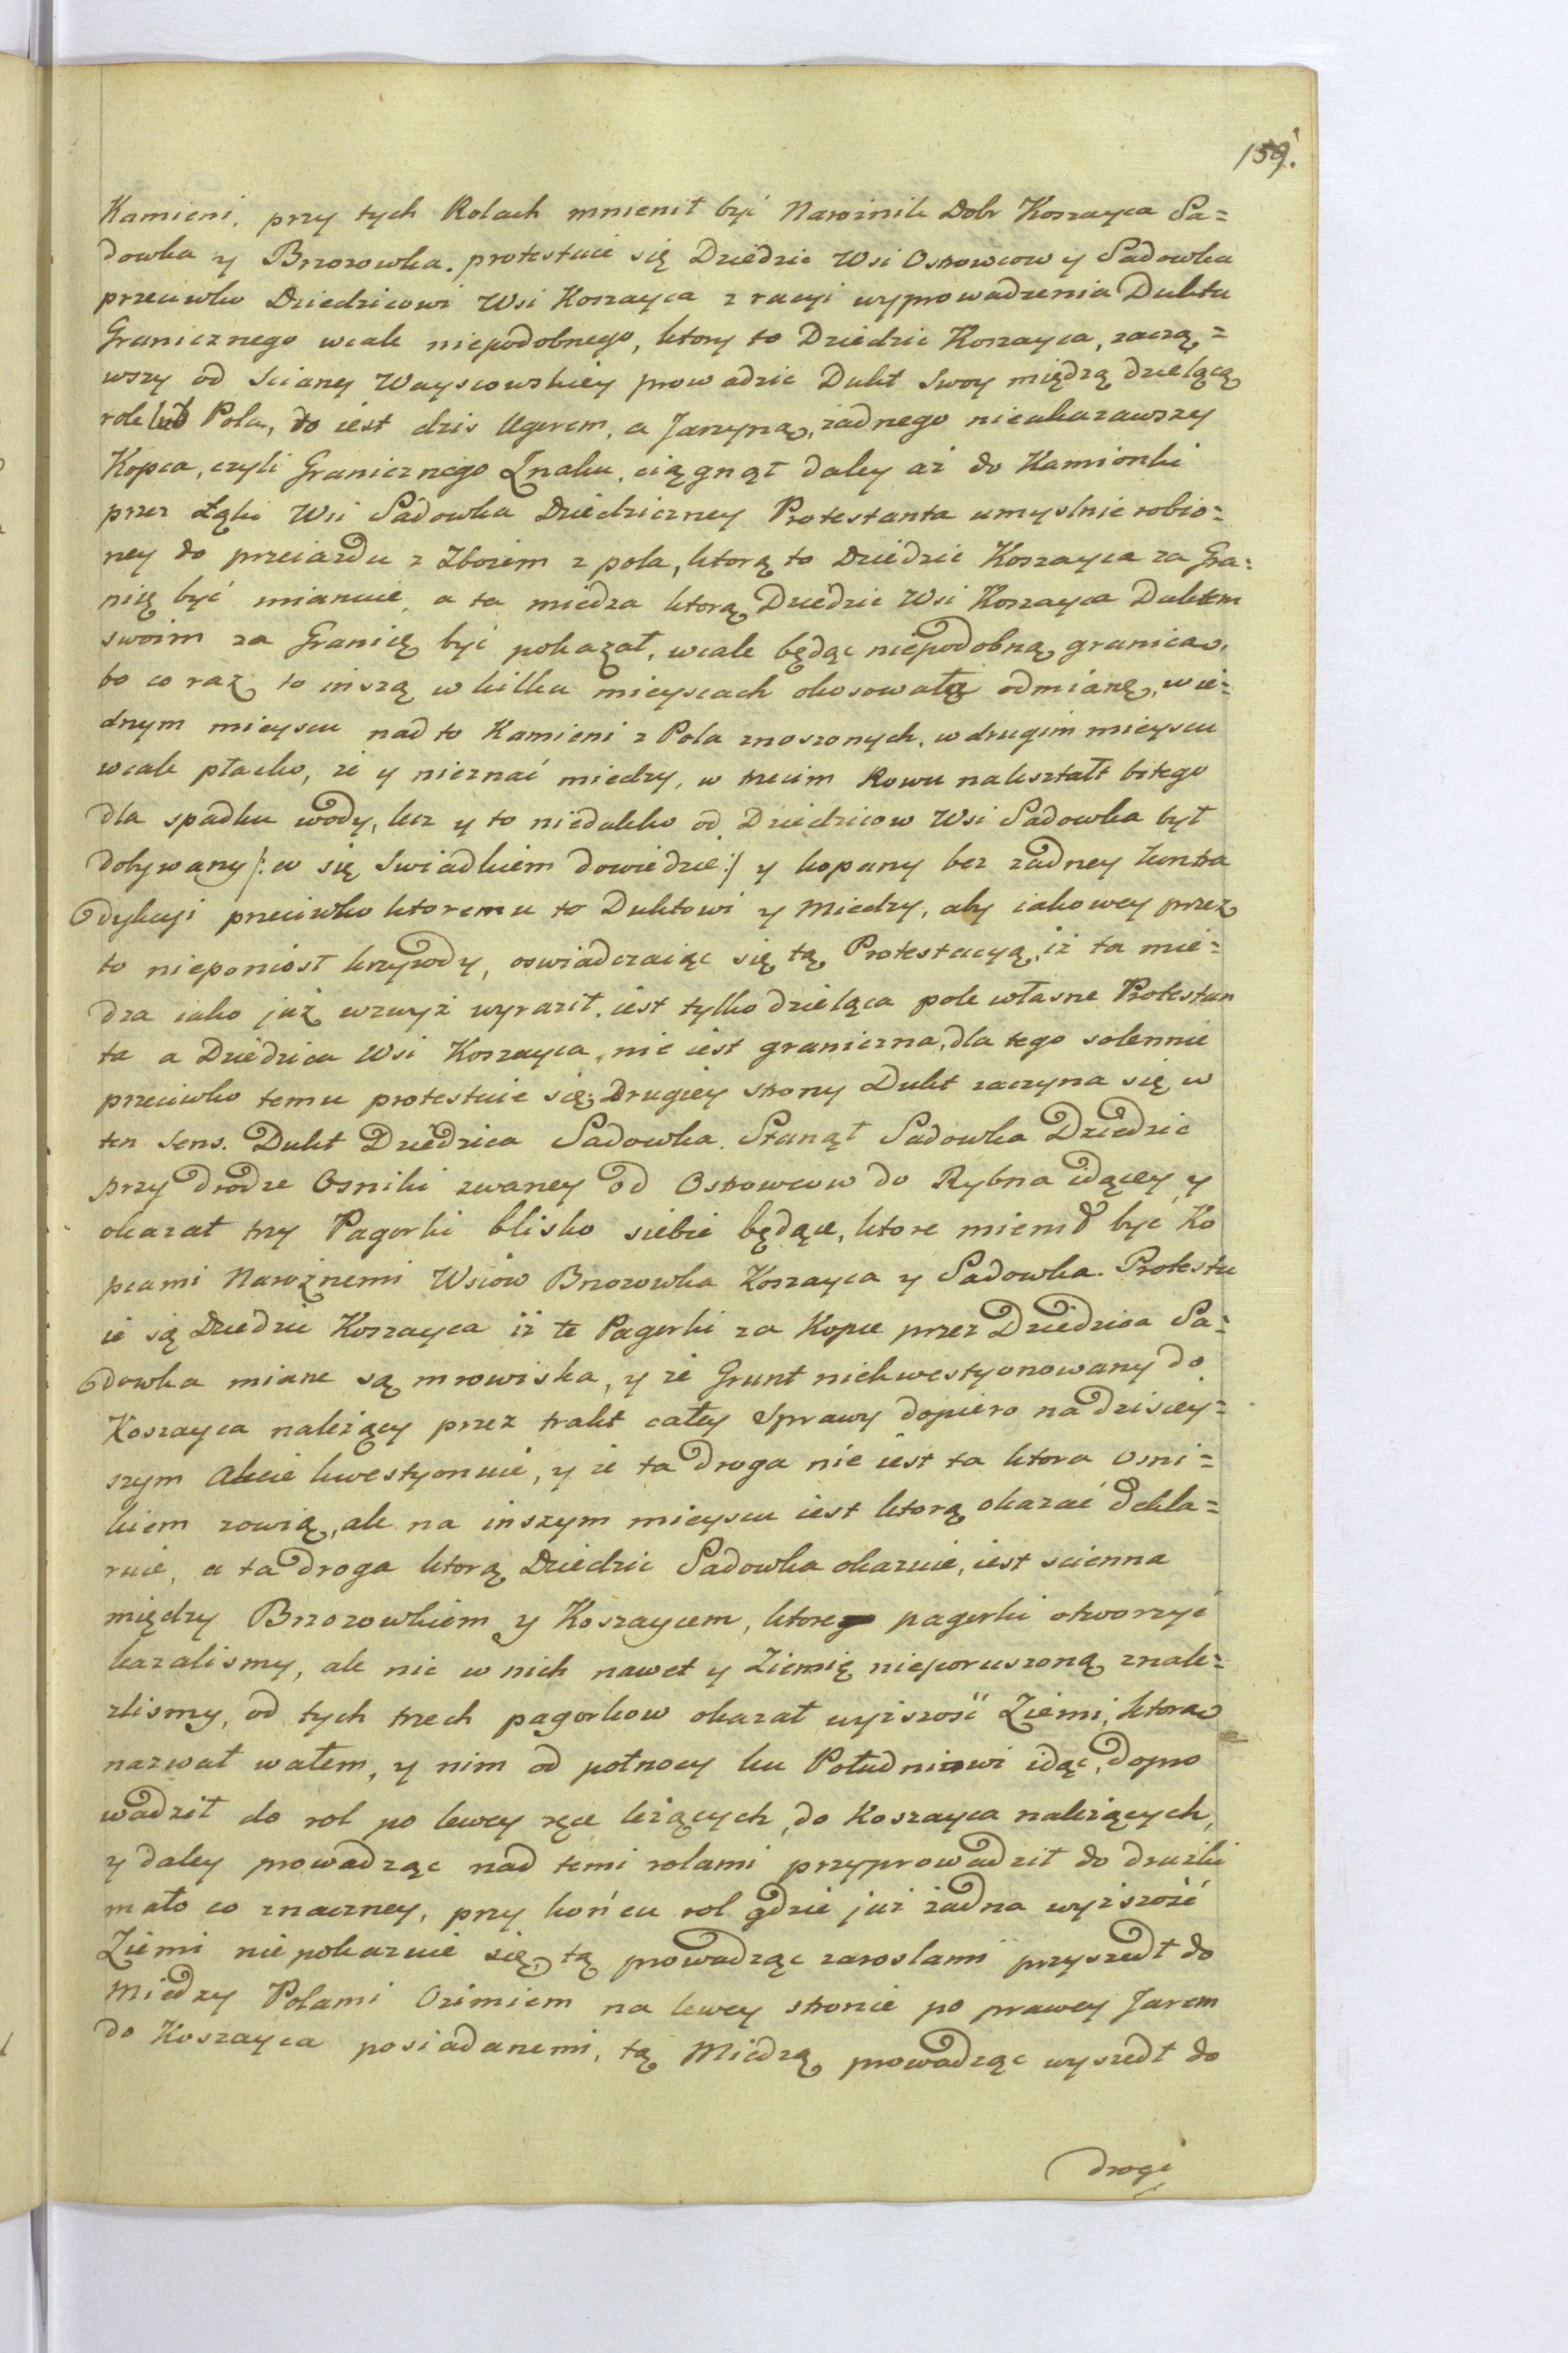 159.
Kamieni, przy tych Rolach mnienił być Narożnik Dobr Koszayca Sa=
dowka y Brzozowka. protestuie się Dziedzic Wsi Ostrowcow y Sadowka
przeciwko Dziedzicowi Wsi Koszayca z racyi wyprowadzenia Duktu
Granicznego wcale niepodobnego, ktory to Dziedzic Koszayca, zaczą=
wszy od Sciany Wayscowskiey prowadzic Dukt Swoy między dzielącą
role lub Pola, to iest dzis Ugorem, a Jarzyną, zadnego nieukazawszy
Kopca, czyli Granicznego Znaku, ciągnął daley aż do Kamionki
przez Łąki Wsi Sadowka Dziedziczney Protestanta umyslnie robio=
ney do przeiazdu z Zbozem z pola, ktorą to Dziedzic Koszayca za Gra=
nię być mianuie, a ta miedza ktorą Dziedzic Wsi Koszayca Duktem
swoim za Granicę być pokazał, wcale będąc niepodobną granicą,
bo co raz to inszą w kilku mieyscach okosowałą odmianę, w ie=
dnym mieyscu nad to Kamieni z Pola znoszonych, w drugim mieyscu
wcale płacko, że y nieznać miedzy, w trzecim Rowu nakształt bitego
dla spadku wody, lecz y to niedaleko od Dziedzicow Wsi Sadowka był
dobywany /: co się Swiadkiem dowiedzie :/ y kopany bez zadney kontra
dykcyi przeciwko ktoremu to Duktowi y Miedzy, aby iakowey przez
to nieponiosł krzywdy, oswiadczaiąc się tą Protestacyą, iż ta mie=
dza iako już wzwyż wyraził, iest tylko dzieląca pole własne Protestan
ta a Dziedzica Wsi Koszayca, nie iest graniczna, dla tego solennie
przeciwko temu protestuie się; Drugiey strony Dukt zaczyna się w
ten Sens. Dukt Dziedzica Sadowka. Stanął Sadowka Dziedzic
przy drodze Osniki zwaney od Ostrowcow do Rybna idącey, y
okazał trzy Pagorki blisko siebie będące, ktore mienił być Ko
pcami Narożnemi Wsiow Brzozowka Koszayca y Sadowka. Protestu
ie są Dziedzic Koszayca iż te Pagorki za Kopce przez Dziedzica Sa=
dowka miane są mrowiska, y że Grunt niekwestyonowany do
Koszayca należący przez trakt całey Sprawy dopiero na dzisiey=
szym Akcie kwestyonuie, y że ta droga nie iest ta ktora Osni=
kiem zowią, ale na inszym mieyscu iest ktorą okazać dekla=
ruie, a ta droga ktorą Dziedzic Sadowka okazuie, iest scienna
między Brzozowkiem y Koszaycem, ktore pagorki otworzyć
kazalismy, ale nic w nich nawet y Ziemię nieporuszoną znale=
zlismy, od tych trzech pagorkow okazał wyższość Ziemi, ktorą
nazwał wałem, y nim od połnocy ku Południowi idąc, dopro
wadził do rol po lewey ręce leżących, do Koszayca należących,
y daley prowadząc nad temi rolami przyprowadził do drużki
mało co znaczney, przy końcu rol gdzie już żadna wyższość
Ziemi niepokazuie się, tą prowadząc zaroslami przyszedł do
Miedzy Polami Ozimiem na lewey stronie po prawey Jarem
do Koszayca posiadanemi, tą Miedzą prowadząc wyszedł do
drogi